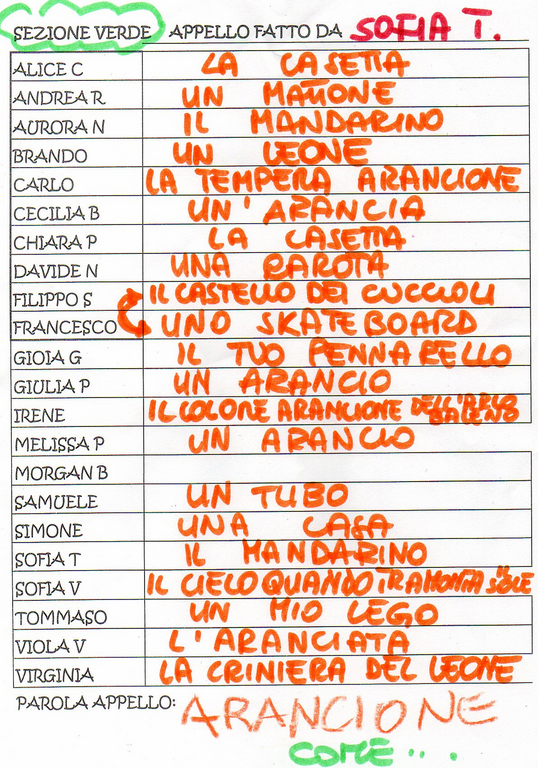 SEZIONE VERDE APPELLO FATTO DA SOFIA T.
ALICE C LA CASETTA
ANDREA R UN MATTONE
AURORA N IL MANDARINO
BRANDO UN LEONE
CARLO LA TEMPERA ARANCIONE
CECILIA B UN'ARANCIA
CHIARA P LA CASETTA
DAVIDE N UNA CAROTA
FILIPPO S IL CASTELLO DEI CUCCIOLI
FRANCESCO UNO SKATEBOARD
GIOIA G IL TUO PENNARELLO
GIULIA P UN ARANCIO
IRENE IL COLORE ARANCIONE DELL'ARCO
BALENO
MELISSA P UN ARANCIO
MORGAN B
SAMUELE UN TUBO
SIMONE UNA CASA
SOFIA T IL MANDARINO
SOFIA V IL CIELO QUANDO TRAMONTA IL SOLE
TOMMASO UN MIO LEGO
VIOLA V L'ARANCIATA
VIRGINIA LA CRINIERA DEL LEONE
PAROLA APPELLO: ARANCIONE
COME ...